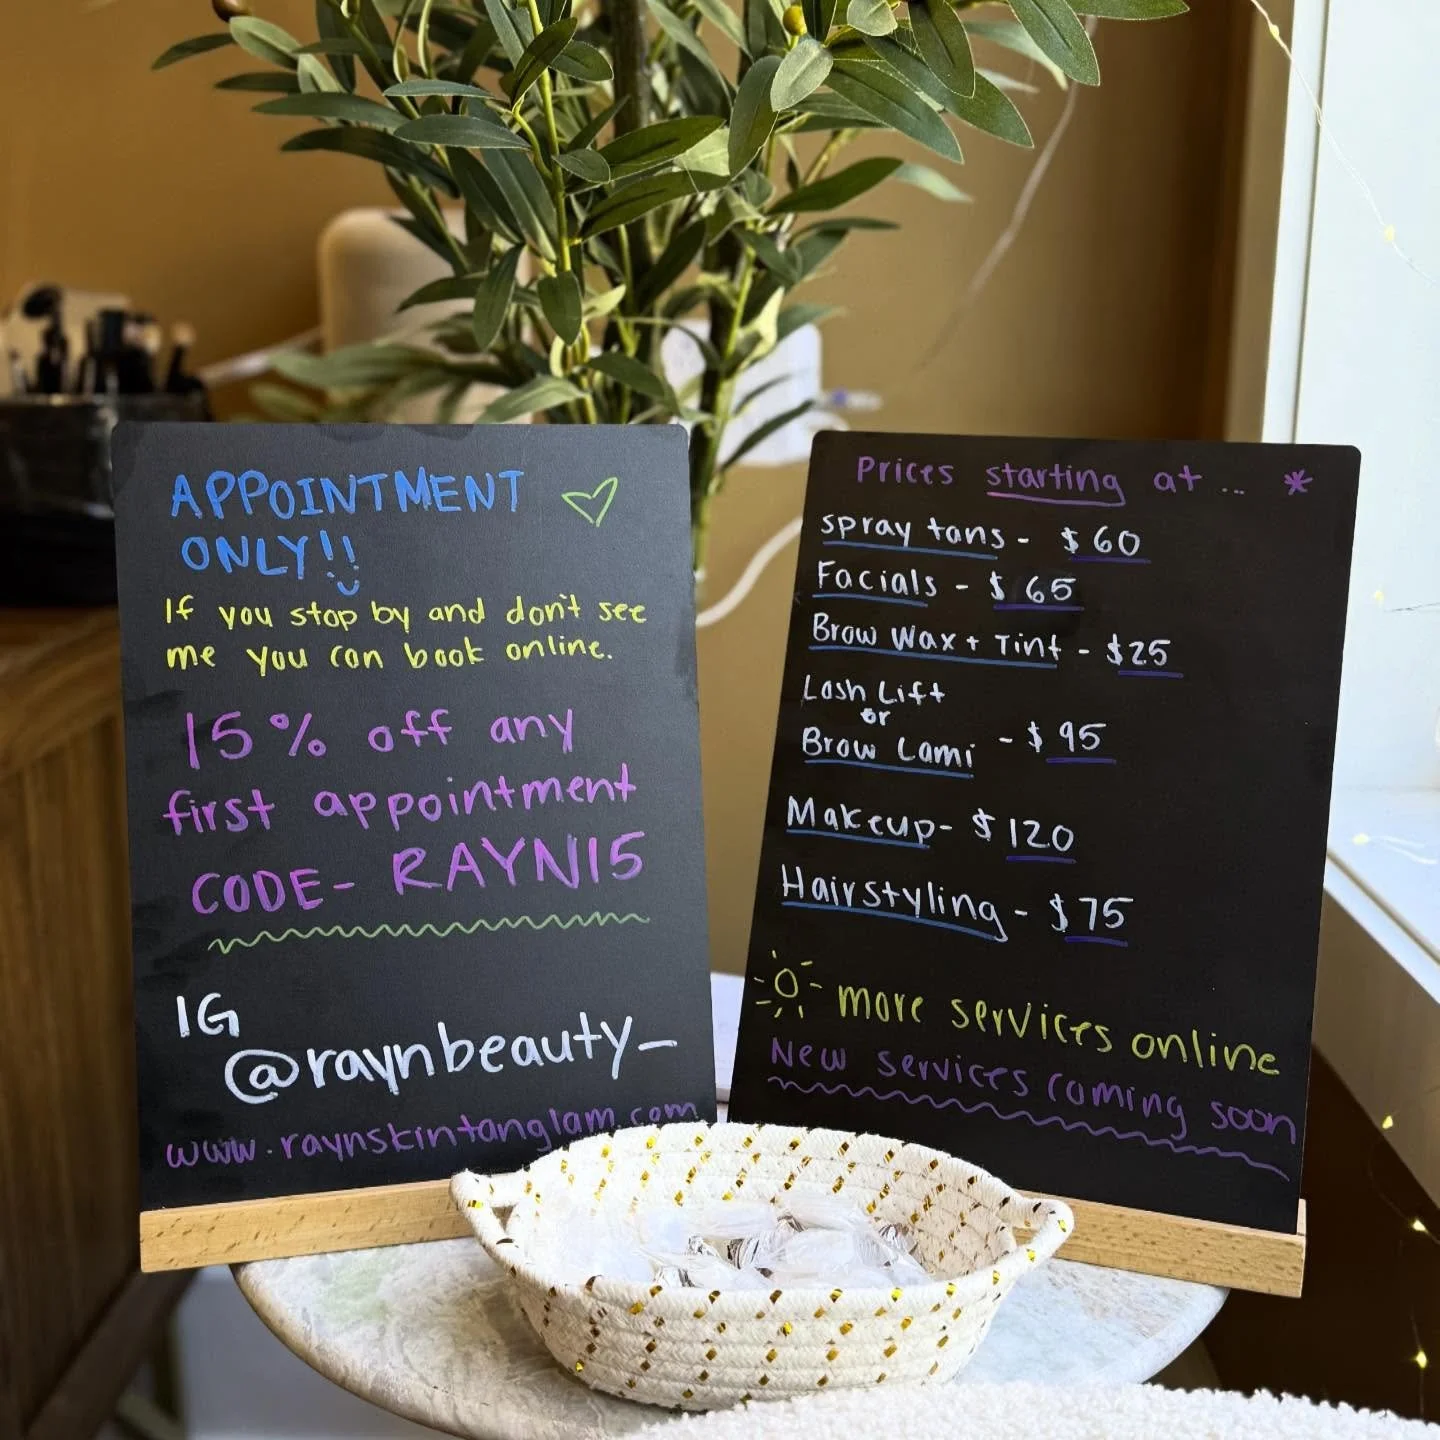 APPOINTMENT
ONLY!!
If you stop by and don't see
me you can book online.
15% off any
first appointment
CODE- RAYN15
IG
@raynbeauty_
www.raynskintanglam.com
Prices starting at ... *
spray tans - $60
Facials - $65
Brow Wax + Tint - $25
Lash Lift
or
Brow Lami - $95
Makeup- $120
Hairstyling - $75
more services online
New services coming soon